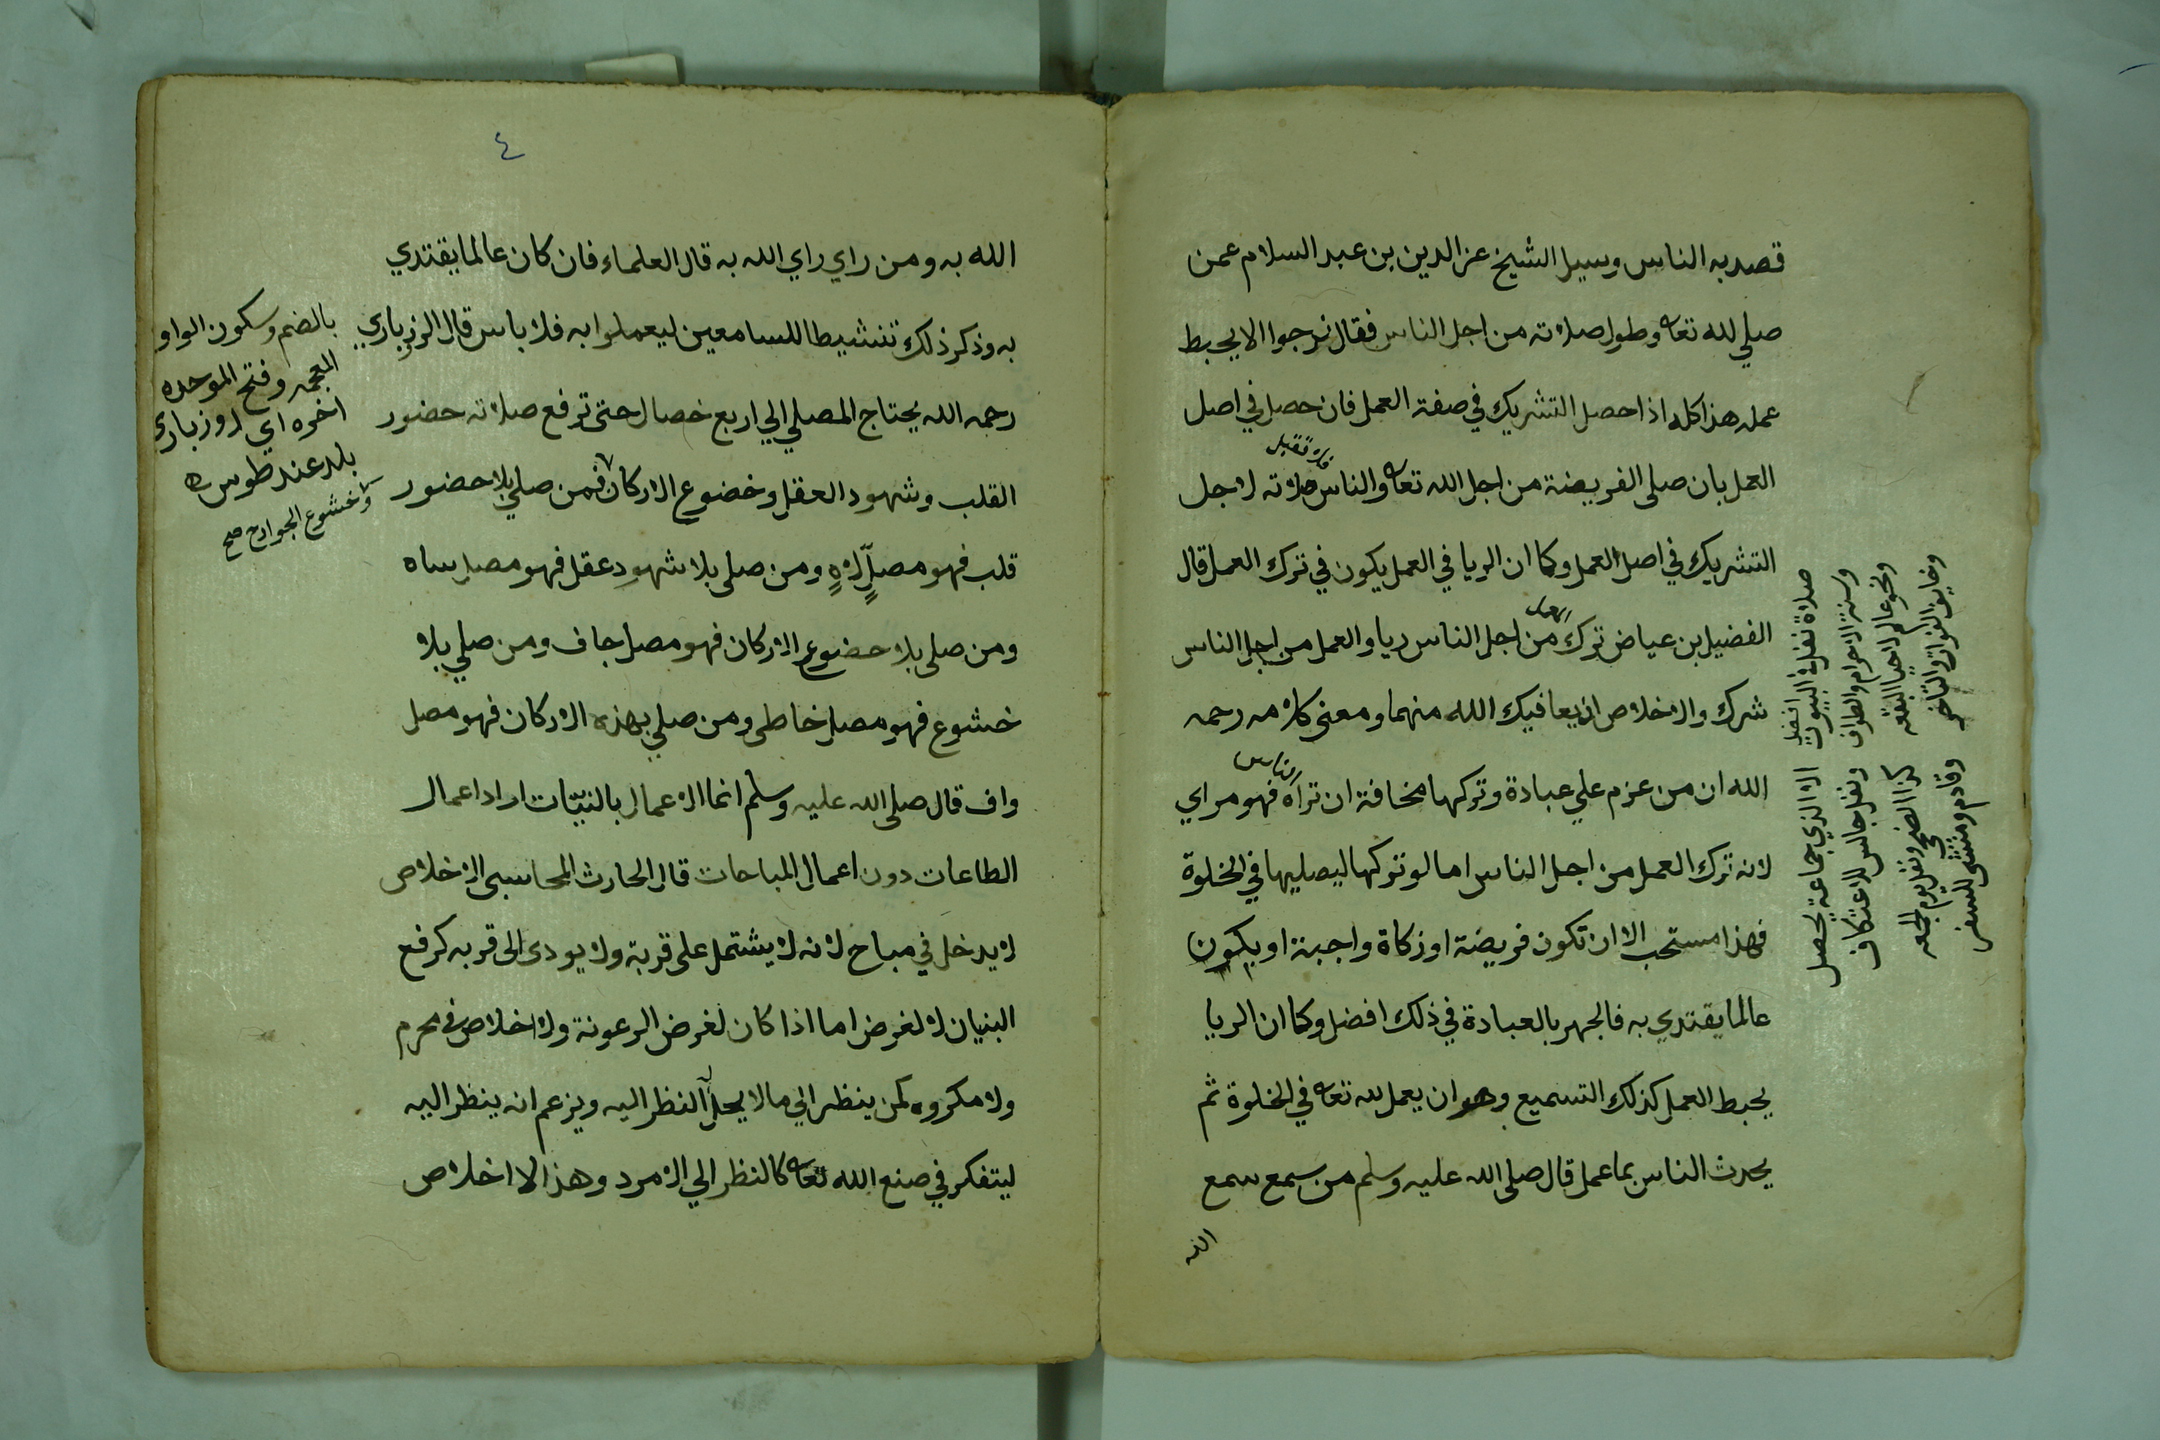 قصد به الناس وسيل الشيخ عز الدين بن عبد السلام عمن
صلي لله تعا وطول صلاته من اجل الناس فقال نرجوا الا يحبط
عمله هذا كله اذا حصل التشريك في صفة العمل فان حصل في اصل
العمل بان صلى الفريضة من اجل الله تعا والناس فلا تقبل صلاته لاجل
التشريك في اصل العمل وكما ان الريا في العمل يكون في ترك العمل قال
الفضيل بن عياض ترك العمل من اجل الناس ريا والعمل من اجل الناس
شرك والاخلاص ان يعافيك الله منهما ومعنى كلامه رحمه
الله ان من عزم علي عبادة وتركها مخافة ان تراه الناس فهو مراي
لانه ترك العمل من اجل الناس اما لو تركها ليصليها في الخلوة
فهذا مستحب الا ان تكون فريضة او زكاة واجبة او يكون
عالما يقتدي به فالجهر بالعبادة في ذلك افضل وكما ان الريا
يحبط العمل كذلك التسميع وهو ان يعمل لله تعا في الخلوة ثم
يحدث الناس بما عمل قال صلى الله عليه وسلم من سمع سمع
الله
صلاة نفل في البيوت افضل الا الذي جماعة يحصل
وسنة الاحرام والطواف ونفل جالس للاعتكاف
ونحو لاحيا البقعه كذا الضحى ونفل يوم الجمعه
وخايف الفوات والتاخر وقادم ومنشى للسفر
٤
الله به ومن راي راي الله به قال العلماء فان كان عالما يقتدي
به وذكر ذلك تنشيطا للسامعين ليعملوا به فلا باس قال الرزباري
رحمه الله يحتاج المصلي الي اربع خصال حتى ترفع صلاته حضور
القلب وشهود العقل وخضوع الاركان فمن صلي بلا حضور
قلب فهو مصلٍّ لاهٍ ومن صلى بلا شهود عقل فهو مصل ساه
ومن صلى بلا خضوع الاركان فهو مصل جاف ومن صلي بلا
خشوع فهو مصل خاطى ومن صلي بهذه الاركان فهو مصل
واف قال صلى الله عليه وسلم انما الاعمال بالنيّات اراد اعمال
الطاعات دون اعمال المباحات قال الحارث المحاسبي الاخلاص
لا يدخل في مباح لانه لا يشتمل على قربة ولا يودى الى قربه كرفع
البنيان لا لغرض اما اذا كان لغرض الرعونة ولا اخلاص في محرم
ولا مكروه كمن ينظر الي مالا يحل النظر اليه ويزعم انه ينظر اليه
ليتفكر في صنع الله تعا كالنظر الي الامرد وهذا لا اخلاص
بالضم وسكون الواو
المعجمه وفتح الموحده
اخره اي روزباري
بلد عند طوس
وخشوع الجوارح صح